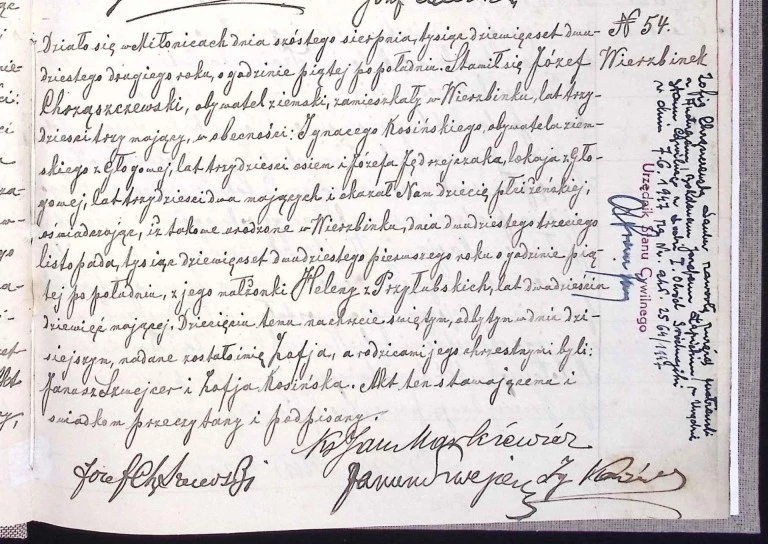 № 54.
Wierzbinek
Działo się w Miłonicach dnia szóstego sierpnia, tysiąc dziewięćset dwu-
dziestego drugiego roku, o godzinie piątej po południu. Stawił się Józef
Chrząszczewski, obywatel ziemski, zamieszkały w Wierzbinku, lat trzy-
dzieści trzy mający, w obecności: Ignacego Kosińskiego, obywatela ziem-
skiego z Głogowej, lat trzydzieści osiem i Józefa Jędrzejczaka, lokaja z Gło-
gowej, lat trzydzieści dwa mających i okazał Nam dziecię płci żeńskiej,
oświadczając, iż takowe urodzone w Wierzbinku, dnia dwudziestego trzeciego
listopada, tysiąc dziewięćset dwudziestego pierwszego roku o godzinie pią-
tej po południu, z jego małżonki Heleny z Przyłubskich, lat dwadzieścia
dziewięć mającej. Dziecięciu temu na chrzcie świętym, odbytym w dniu dzi-
siejszym, nadane zostało imię Zofja, a rodzicami jego chrzestnymi byli:
Janusz Szwejcer i Zofja Kosińska. Akt ten stawającemu i
świadkom przeczytany i podpisany.
Ks Jan Markiewicz
Józef Chrząszczewski Janusz Szwejcer
Zofja zawarła związek małżeński
Stanu Cywilnego w Łodzi
w dniu 7.6.1947 Nr. akt. 2564/1947
Urzędnik Stanu Cywilnego